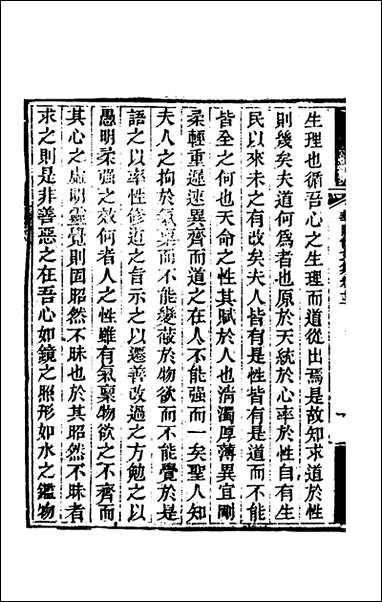 生理也循吾心之生理而道從出焉是故知求道於性
則幾矣夫道何為者也原於天統於心率於性自有生
民以來未之有改矣夫人皆有是性皆有是道而不能
皆全之何也天命之性其賦於人也清濁厚薄異宜剛
柔輕重遲速異齊而道之在人不能强而一矣聖人知
夫人之拘於氣稟而不能變蔽於物欲而不能覺於是
語之以率性修道之旨示之以遷善改過之方勉之以
愚明柔强之效何者人之性雖有氣稟物欲之不齊而
其心之虛明靈覺則固昭然不昧也於其昭然不昧者
求之則是非善惡之在吾心如鏡之照形如水之鑑物